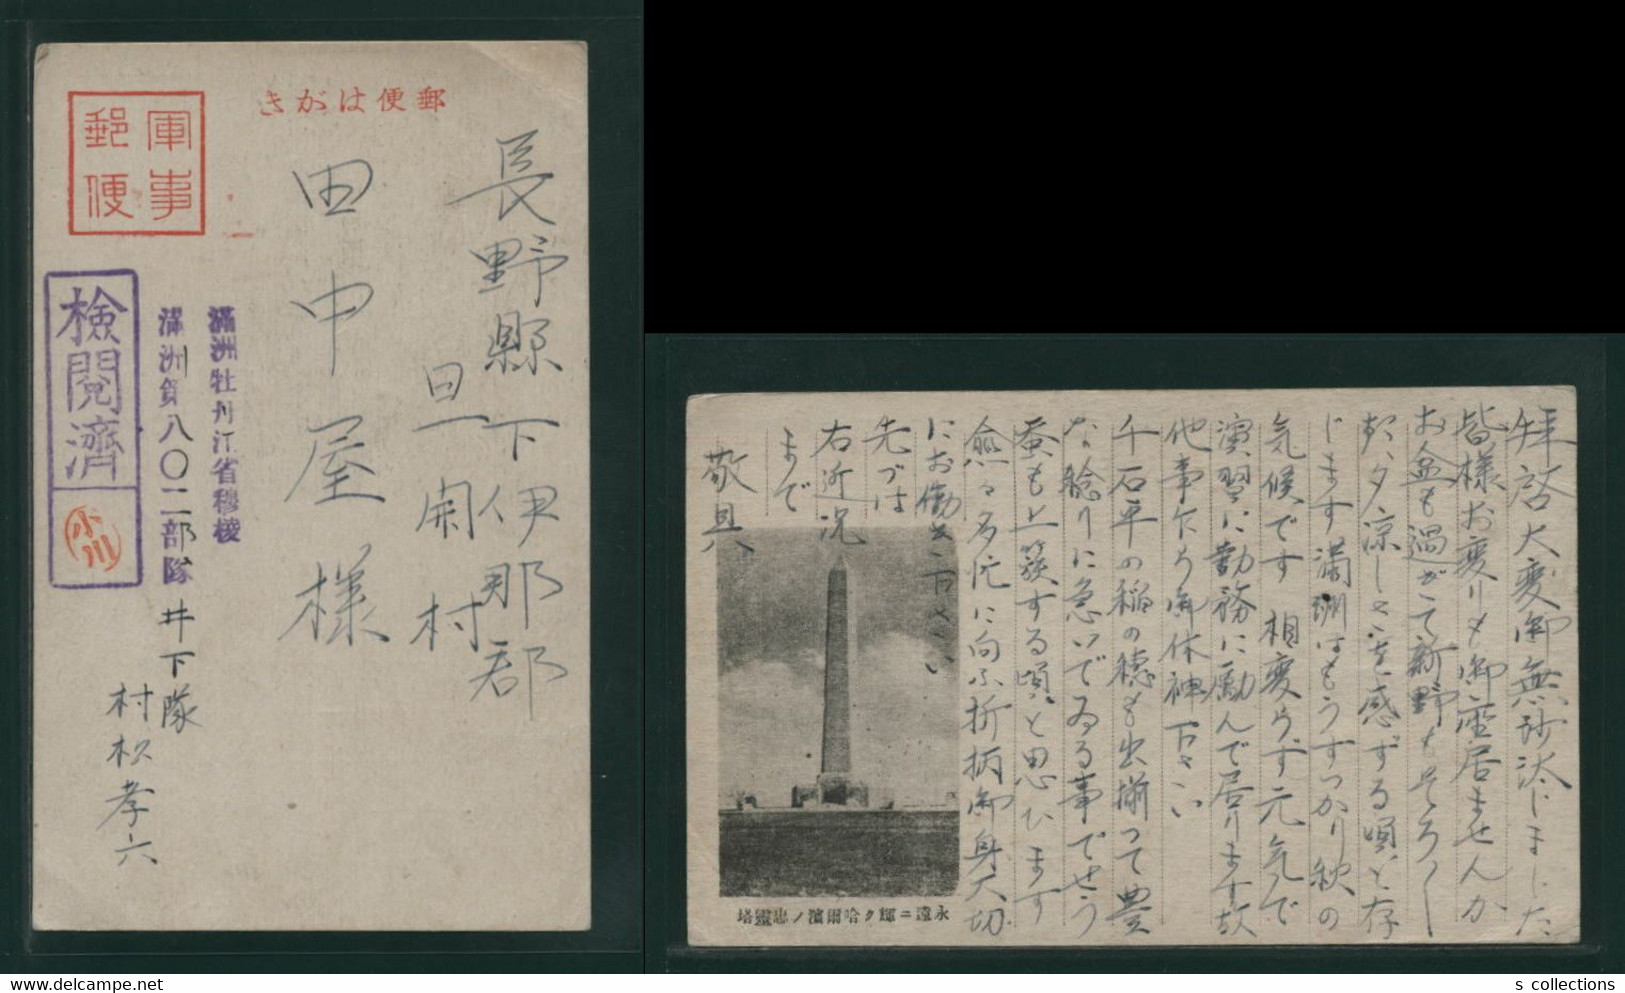 郵便はがき
軍事
郵便
長野縣下伊那郡
旦開村
田中屋様
滿洲牡丹江省穆稜
滿洲第八〇二部隊井下隊
村松孝六
検閲濟
小川
拝啓大変御無沙汰じました
皆様お変りも御座居ませんか
お盆も過ぎて新野もそろ〳〵
朝夕涼しさを感ずる頃と存
じます満洲はもうすつかり秋の
気候です 相変らず元気で
演習に勤務に励んで居ります故
他事乍ら御休神下さい
千石平の稲の穂も出揃つて豊
な稔りに急いでゐる事でせう
蚕も上簇する頃と思ひます
愈々多忙に向ふ折柄御身大切
にお働き下さい
先づは
右近況
まで
敬具
永遠ニ輝ク哈爾濱ノ忠靈塔
s collections